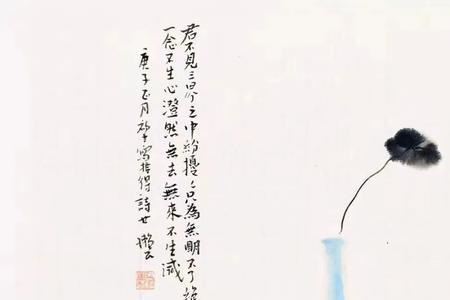 君不見三界之中紛擾々只為無明不了
一念不生心澄然無去無來不生滅
庚子正月初十寫拾得詩